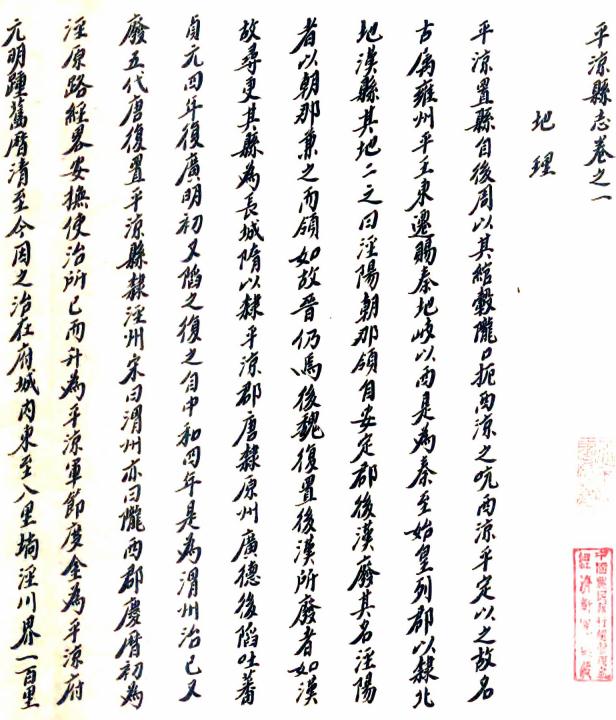 平涼縣志卷之一
地理
平涼置縣自後周以其綰轂隴口扼西涼之吭西涼平定以之故名
古屬雍州平王東遷賜秦地岐以西是為秦至始皇列郡以隸北
地漢縣其地二之曰涇陽朝那領自安定郡後漢廢其名涇陽
者以朝那兼之而領如故晉仍焉後魏復置後漢所廢者如漢
故尋更其縣為長城隋以隸平涼郡唐隸原州廣德後陷吐蕃
貞元四年復廣明初又陷之復之自中和四年是為渭州治已又
廢五代唐復置平涼縣隸涇州宋曰渭州亦曰隴西郡慶曆初為
涇原路經畧安撫使治所已而升為平涼軍節度金為平涼府
元明踵舊曆清至今因之治在府城內東至八里墹涇川界一百里
中國農民銀行
經濟研究